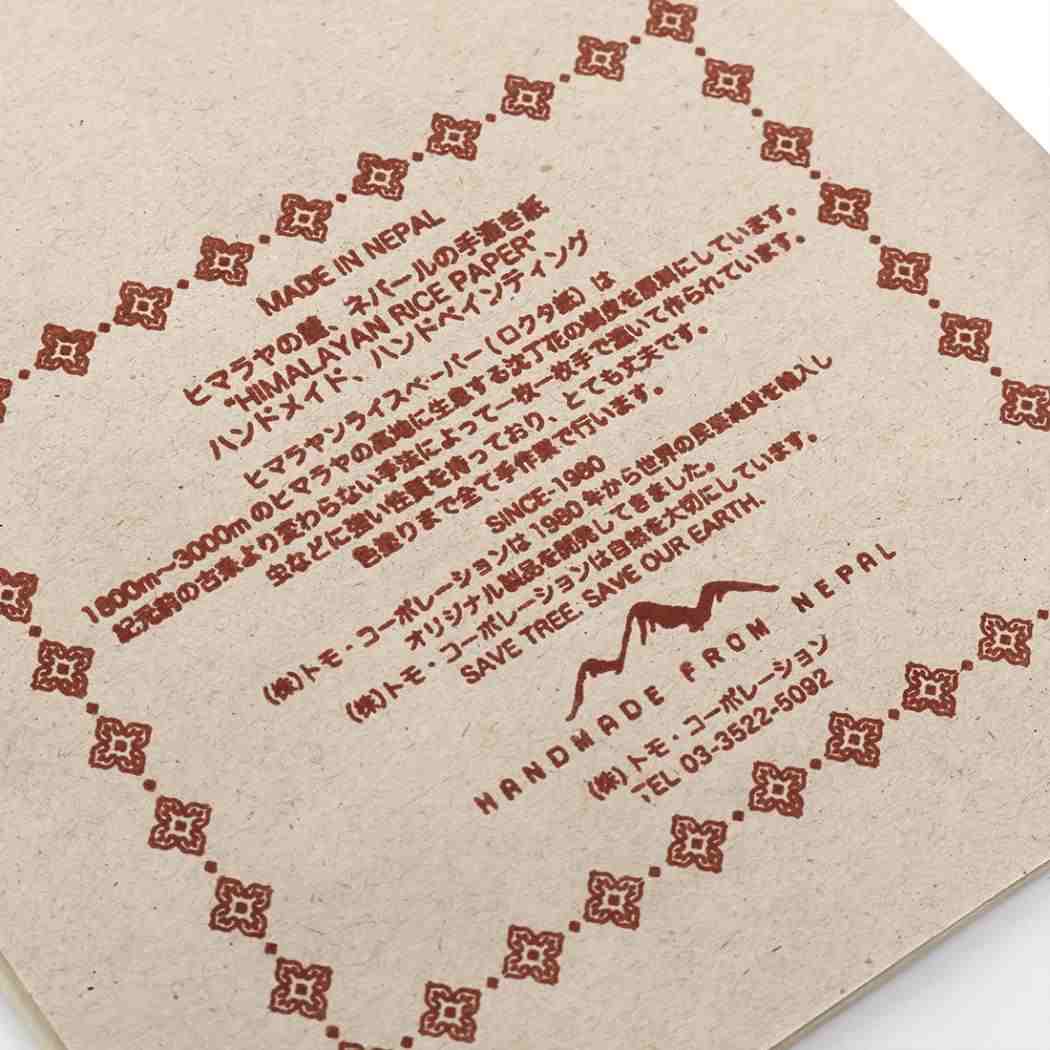 MADE IN NEPAL
ヒマラヤの麓、ネパールの手漉き紙
"HIMALAYAN RICE PAPER"
ハンドメイド、ハンドペインティング
ヒマラヤンライスペーパー(ロクタ紙)は
1800m~3000mのヒマラヤの高地に生息する沈丁花の樹皮を原料にしています。
紀元前の古来より変わらない手法によって一枚一枚手で漉いて作られています。
虫などに強い性質を持っており、とても丈夫です。
色塗りまで全て手作業で行います。
SINCE-1980
(株)トモ・コーポレーションは1980年から世界の民芸雑貨を輸入し
オリジナル製品を開発してきました。
(株)トモ・コーポレーションは自然を大切にしています。
SAVE TREE. SAVE OUR EARTH.
HANDMADE FROM NEPAL
(株)トモ・コーポレーション
TEL 03-3522-5092